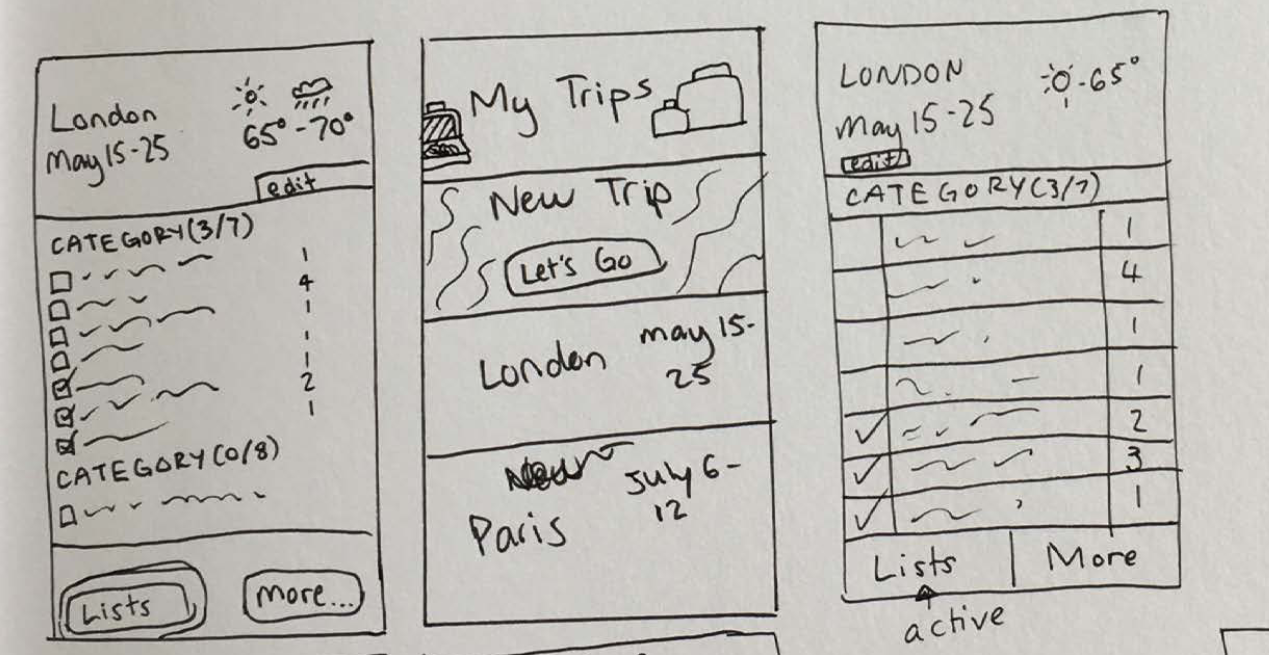 London
May 15-25
65° - 70°
edit
CATEGORY (3/7)
1
4
1
1
1
2
1
CATEGORY (0/8)
Lists
More...
My Trips
New Trip
Let's Go
London
may 15-
25
July 6-
12
Paris
LONDON
May 15-25
65°
edit
CATEGORY (3/7)
1
4
1
1
2
3
1
Lists
More
active